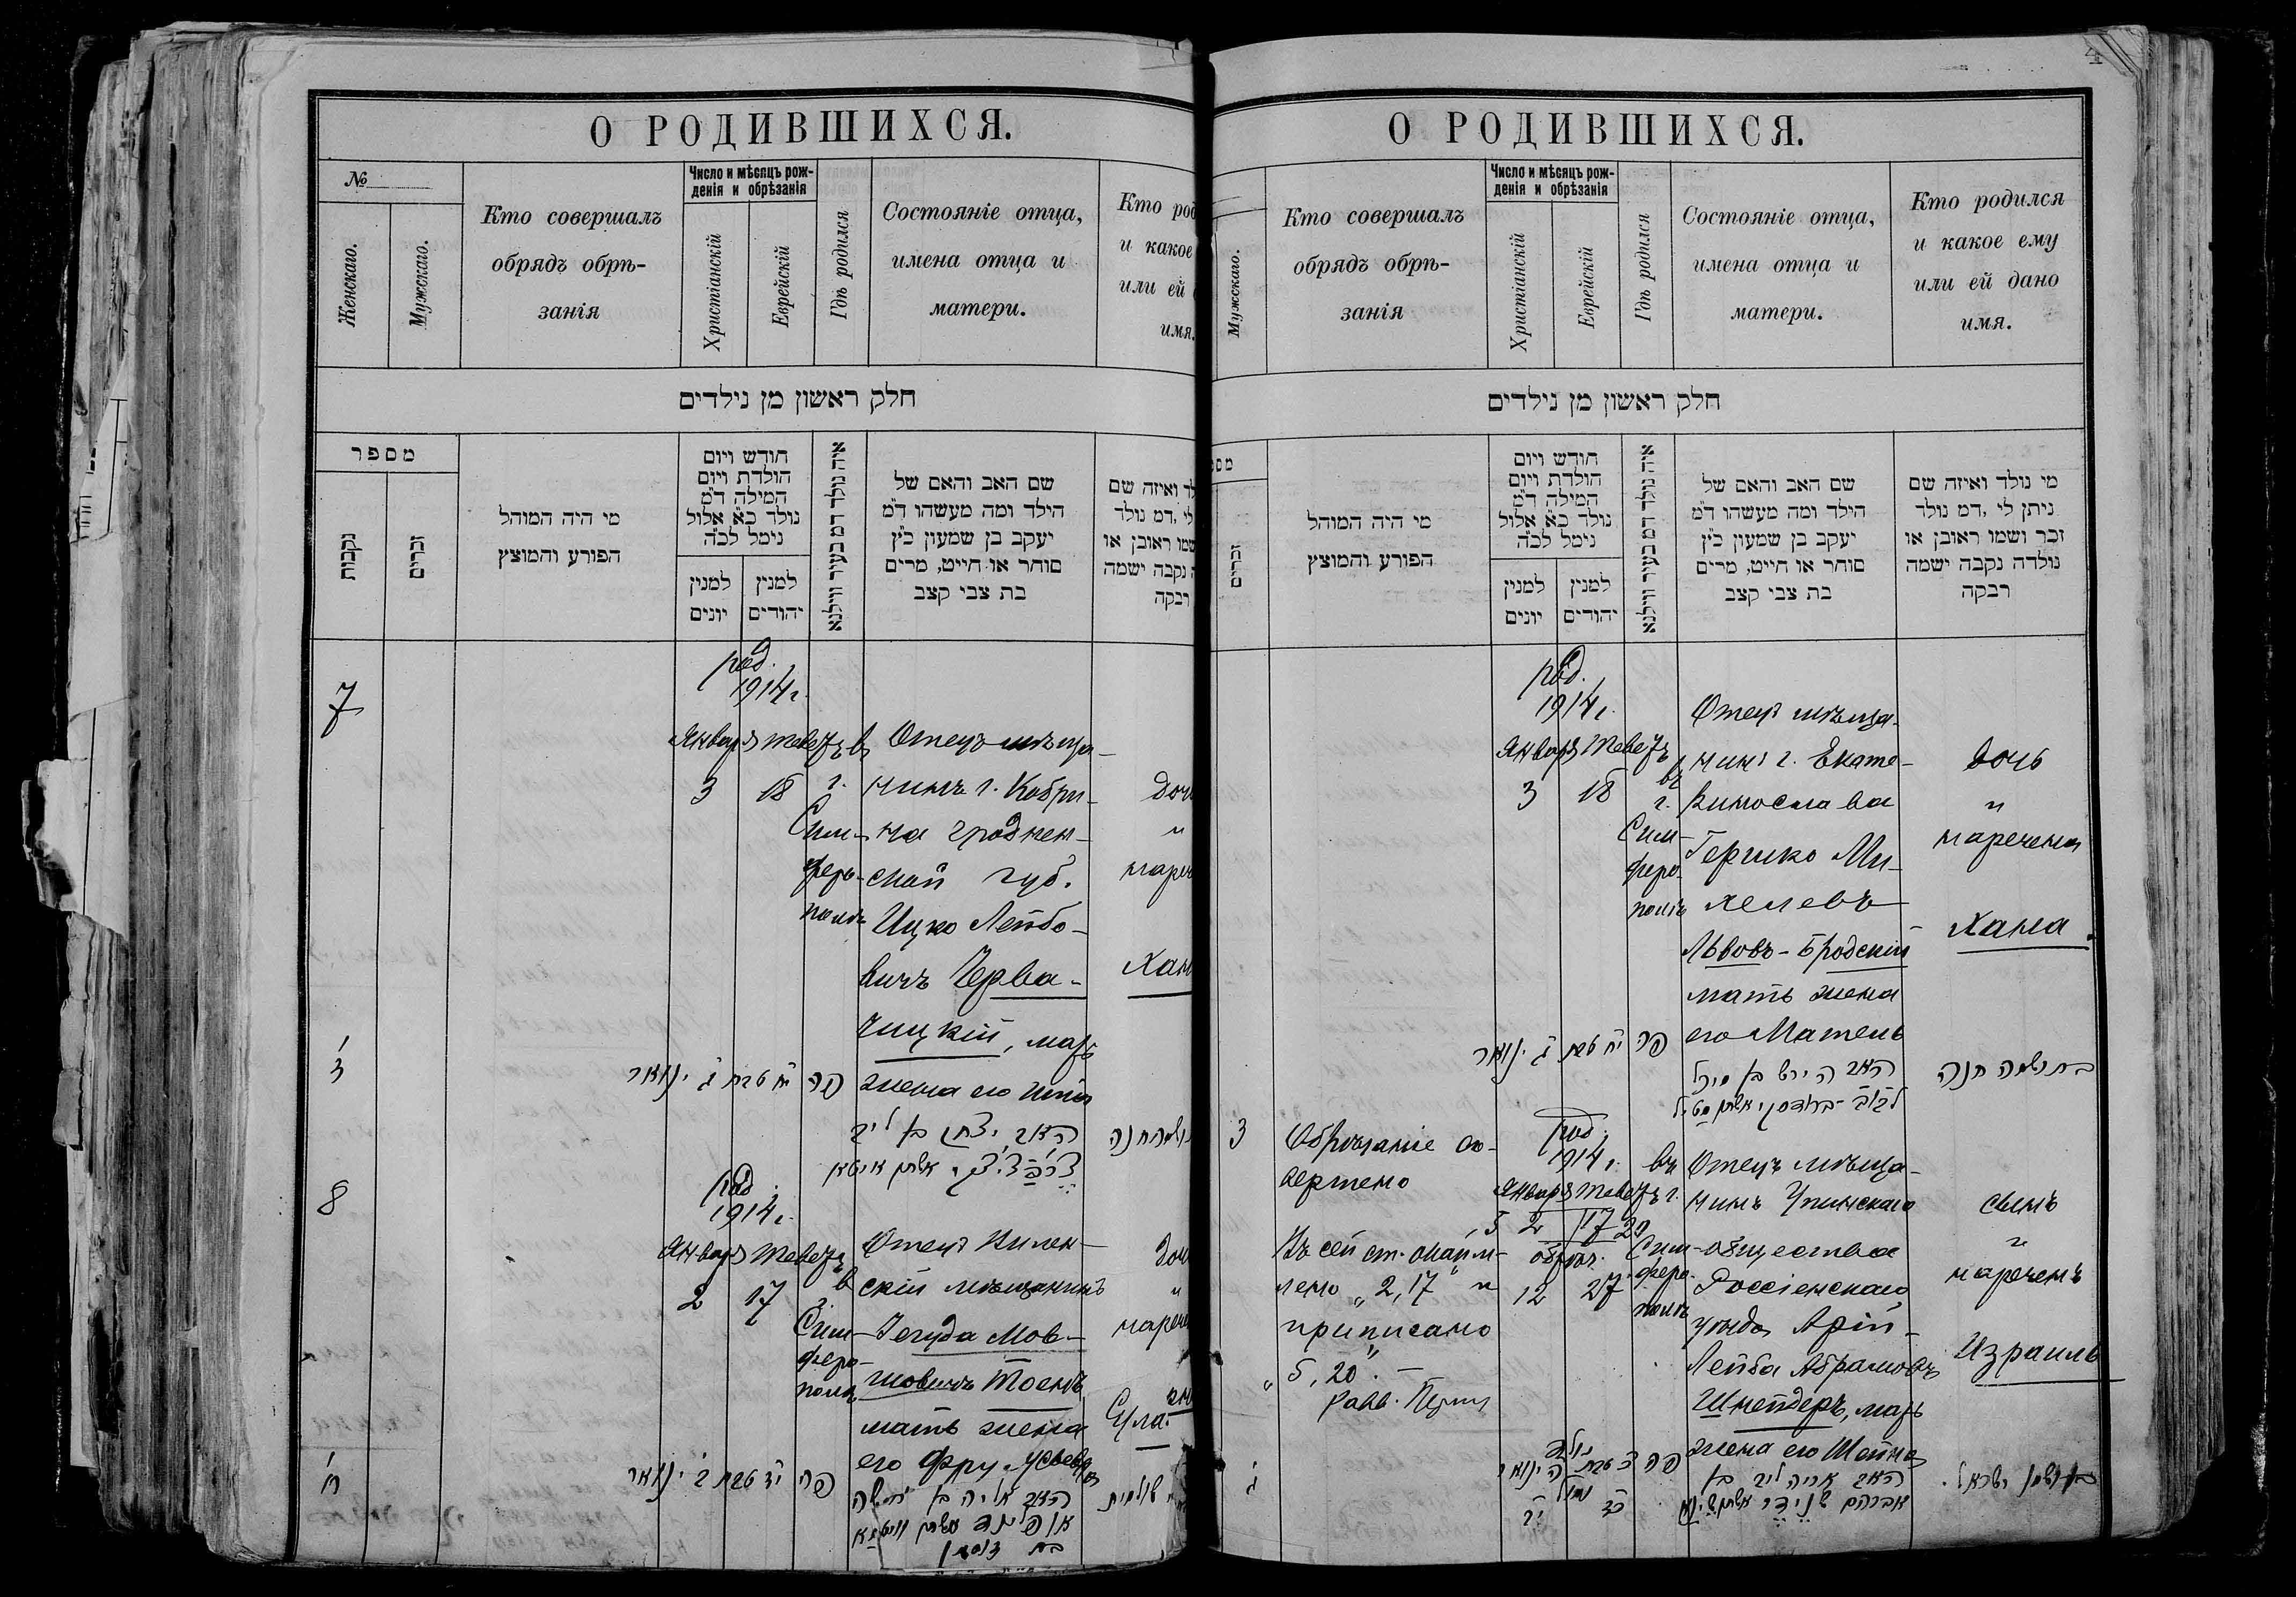 О РОДИВШИХСЯ.
№
Женскаго.
Мужскаго.
Кто совершалъ
обрядъ обрѣ-
занія
Число и мѣсяцъ рож-
денія и обрѣзанія
Христіанскій
Еврейскій
Гдѣ родился
Состояніе отца,
имена отца и
матери.
Кто род
и какое
или ей
имя.
חלק ראשון מן נילדים
מספר
נקבות
זכרים
מי היה המוהל
הפורע והמוצץ
חודש ויום
הולדת ויום
המילה ד״מ
נולד כ״א אלול
נימל לכ״ה
למנין
יונים
למנין
יהודים
איה נולד דמ בעיר ווילנא
שם האב והאם של
הילד ומה מעשהו ד״מ
יעקב בן שמעון כ״ץ
סוחר או חייט, מרים
בת צבי קצב
לד ואיזה שם
לי ,דמ נולד
שמו ראובן או
ה נקבה ישמה
רבקה
7
род.
1914 г.
Январь Тевезъ
3 18
въ
г.
Сим-
феро-
полѣ
Отецъ мѣща-
нинъ г. Кобри-
на Гроднен-
ской губ.
Ицко Лейбо-
вичъ Черва-
чицкій, мать
жена его
доч
и
нареч
Хан
ג ינואר
י״ח טבת
פה
האב יצחק בן ליב
8
род.
1914 г.
Январь Тевезъ
2 17
в
г.
Сим-
феро-
полѣ
Отецъ Вилен-
скій мѣщанинъ
Іегуда Мов-
шовичъ
мать жена
его
доч
и
нарече
ח
ינואר
טבת
פה
О РОДИВШИХСЯ.
4
Мужскаго.
Кто совершалъ
обрядъ обрѣ-
занія
Число и мѣсяцъ рож-
денія и обрѣзанія
Христіанскій
Еврейскій
Гдѣ родился
Состояніе отца,
имена отца и
матери.
Кто родился
и какое ему
или ей дано
имя.
חלק ראשון מן נילדים
מס
זכרים
מי היה המוהל
הפורע והמוצץ
חודש ויום
הולדת ויום
המילה ד״מ
נולד כ״א אלול
נימל לכ״ה
למנין
יונים
למנין
יהודים
איה נולד דמ בעיר ווילנא
שם האב והאם של
הילד ומה מעשהו ד״מ
יעקב בן שמעון כ״ץ
סוחר או חייט, מרים
בת צבי קצב
מי נולד ואיזה שם
ניתן לי ,דמ נולד
זכר ושמו ראובן או
נולדה נקבה ישמה
רבקה
род.
1914 г.
Январь Тевезъ
3 18
въ
г.
Сим-
феро-
полѣ
Отецъ мѣща-
нинъ г. Екате-
ринослава
Гершко Ми-
хелевъ
Львовъ-Бродскій
мать жена
его
дочь
и
наречена
Хана.
ג ינואר
י״ח טבת
פה
האב הירש בן מיכל
בת ושמה חנה
3
Обрѣзаніе со-
вершено
Въ сей ст.
лено „2, 17" и
приписано
„5, 20". —
Равв.
род.
1914 г.
Январь Тевезъ
5 2 17 20
обрѣз.
12 27
въ
г.
Сим-
феро-
полѣ
Отецъ мѣща-
нинъ
общества
Россіенскаго
уѣзда Арій-
Лейба Абрамовъ
Шнейдеръ, мать
жена его Шейна
сынъ
и
нареченъ
Израиль
ג
נולד
כ טבת
ה ינואר
פה
האב אריה ליב בן
אברהם שניידר אשתו שיינא
בן ושמו ישראל.